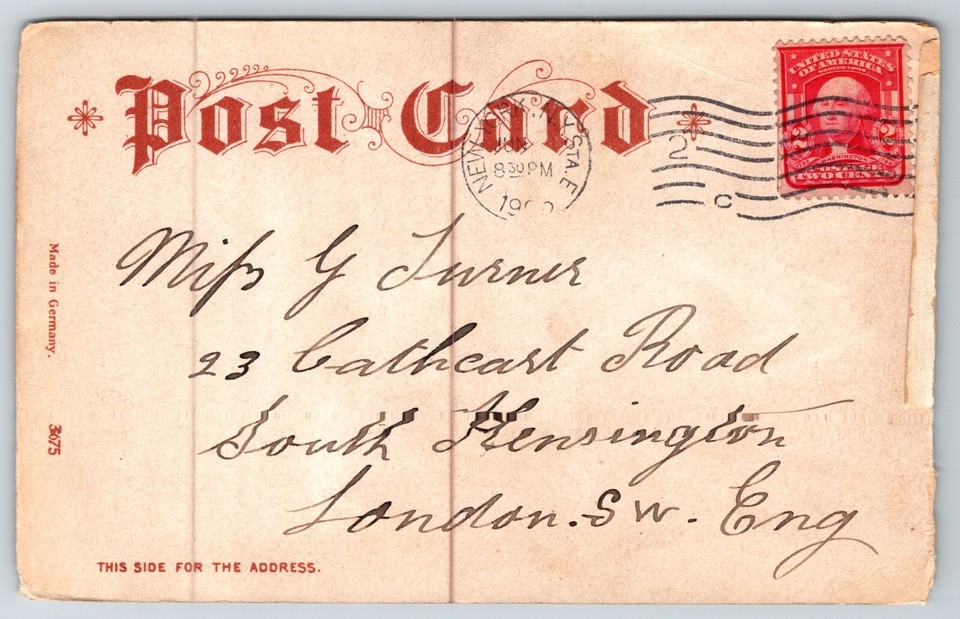 Post Card
NEW YORK, N.Y. STA. E
8 30 PM
UNITED STATES
OF AMERICA
SERIES 1902
2 2
WASHINGTON
POSTAGE
TWO CENTS
2
C
Miss G Turner
23 Cathcart Road
South Kensington
London. S W. Eng
Made in Germany.
3675
THIS SIDE FOR THE ADDRESS.